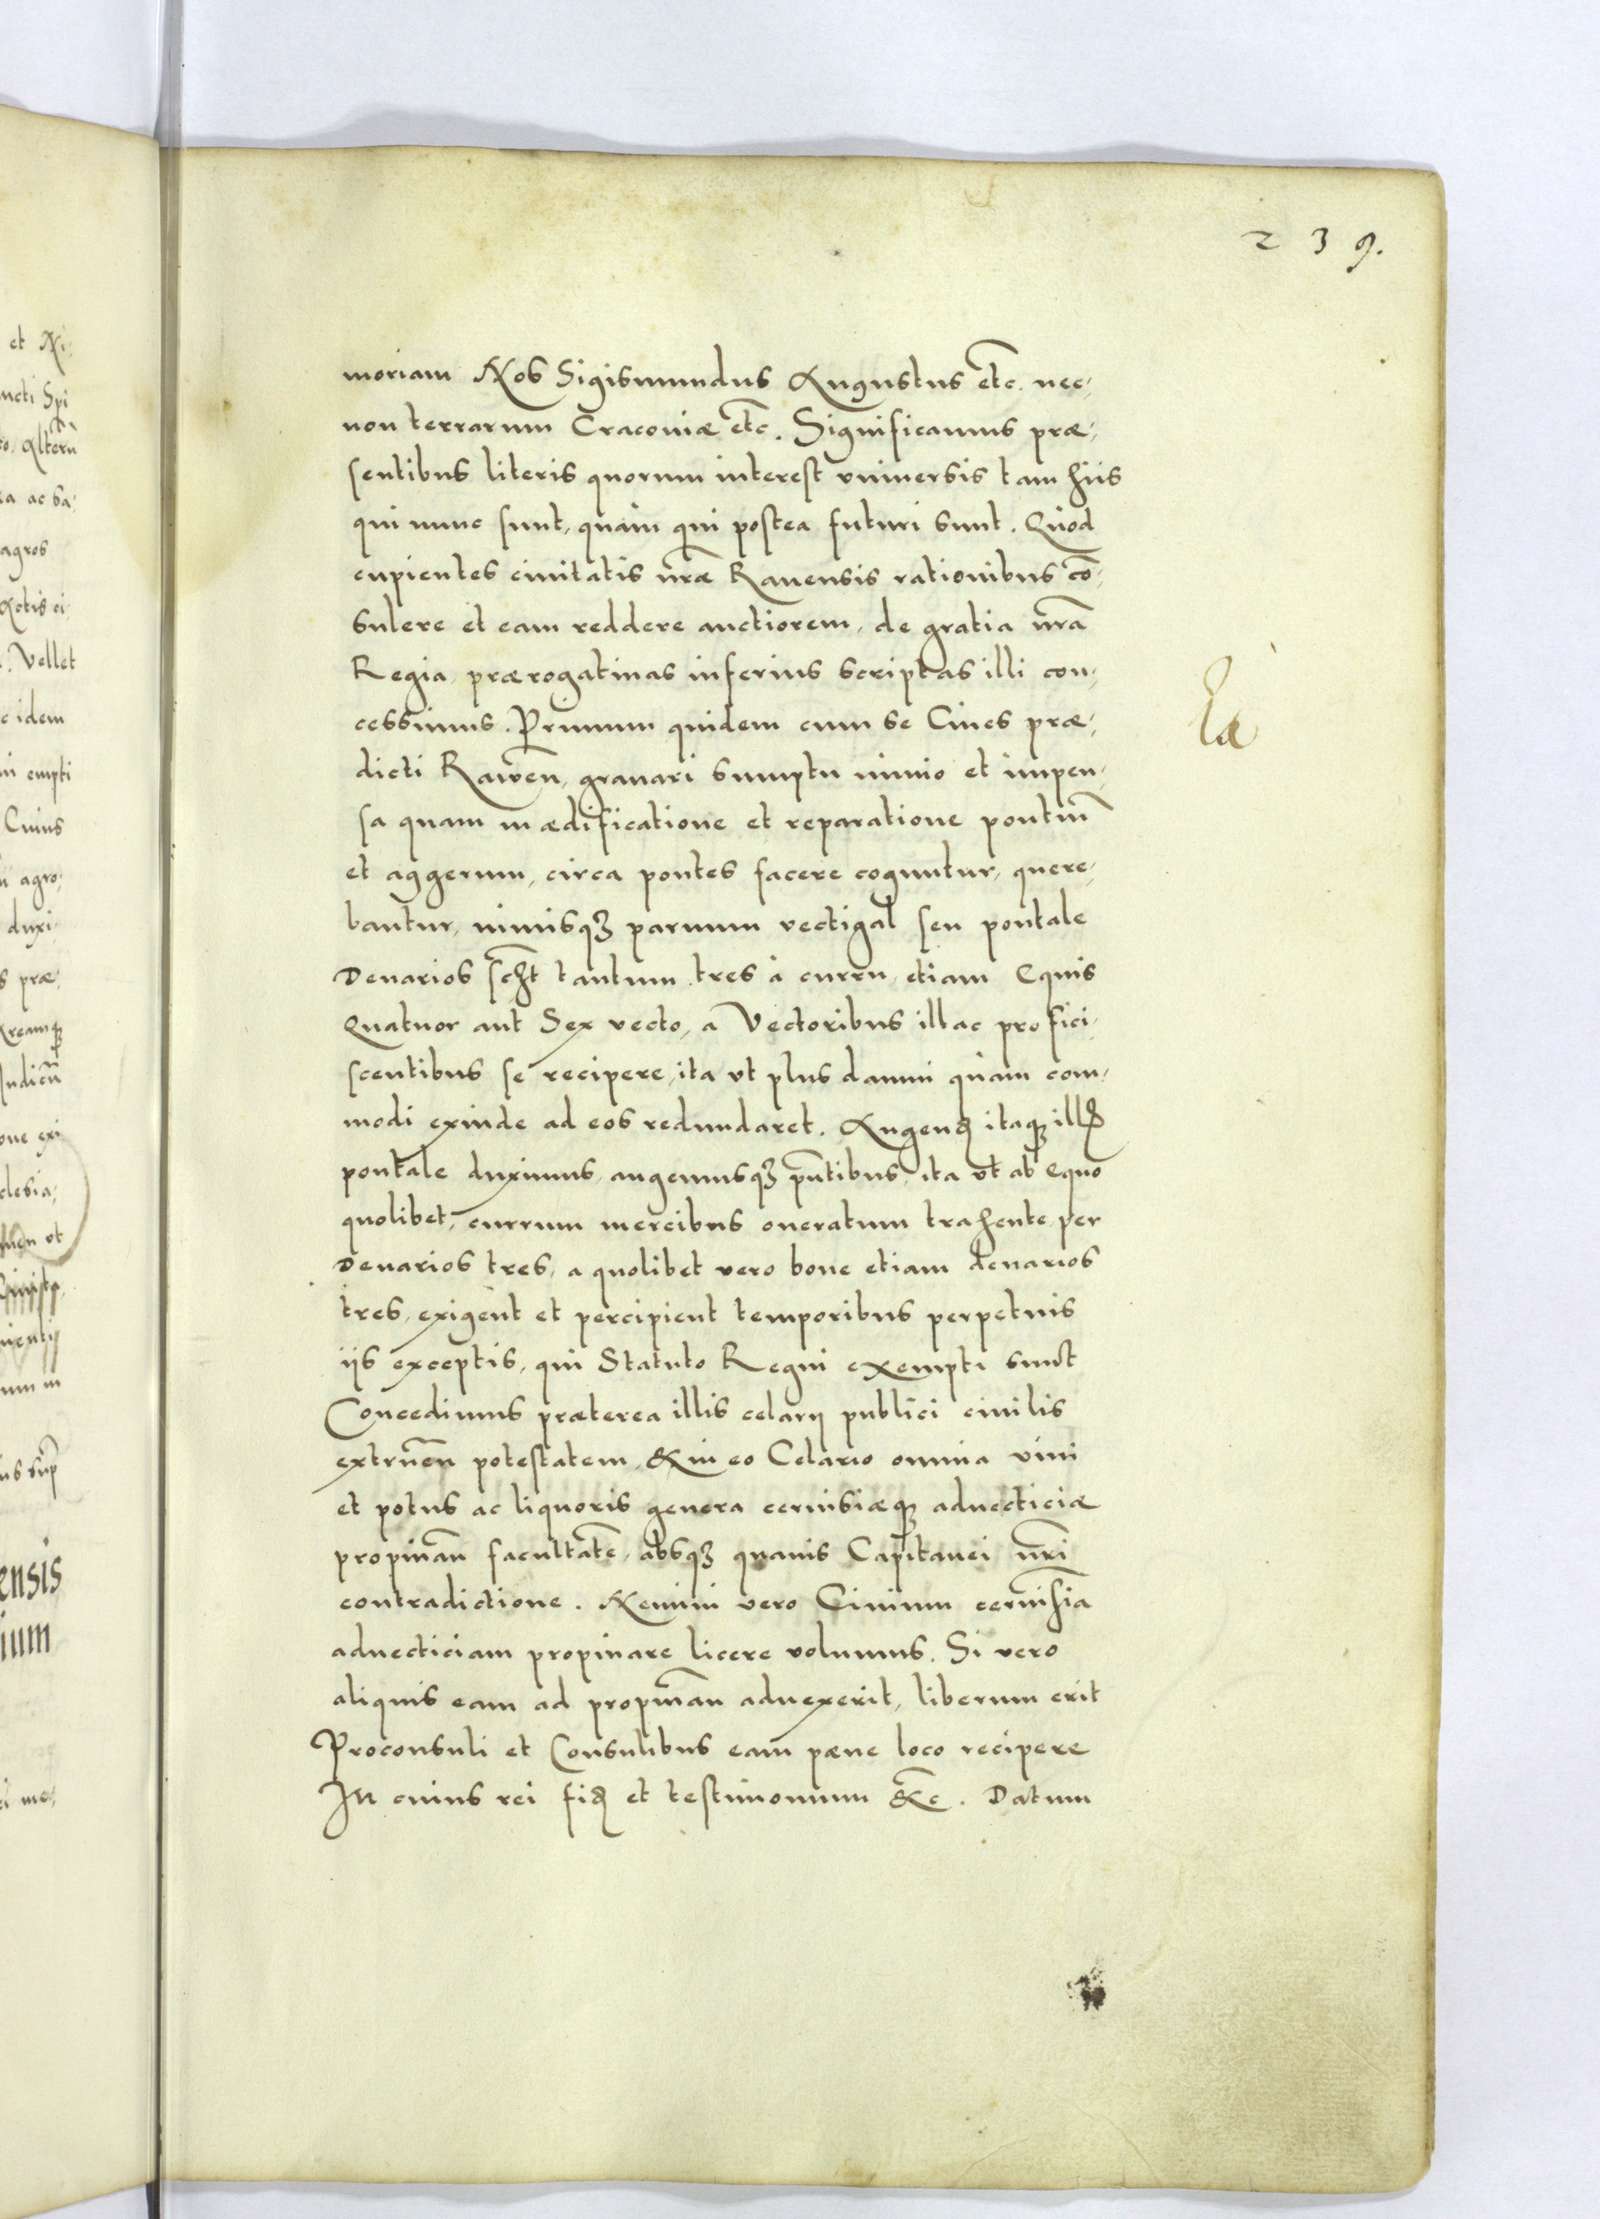 239.
moriam Nos Sigismundus Augustus etc. nec,
non terrarum Cracoviæ etc. Significamus præ,
sentibus literis quorum interest vniuersis tam hiis
qui nunc sunt, quàm qui postea futuri sunt. Quod
cupientes ciuitatis nr̃æ Rauensis rationibus cõ,
sulere et eam reddere auctiorem, de gratia nr̃a
Regia, prærogatiuas inferius scriptas illi con,
cessimus. Primum quidem cum se Ciues præ,
dicti Rawen̄, grauari sumptu nimio et impen,
sa quam in ædificatione et reparatione pontiũ
et aggerum, circa pontes facere coguntur, quere,
bantur, nimisqꝫ paruum vectigal seu pontale
Denarios sclt̃ tantum tres à curru, etiam Equis
Quatuor aut Sex vecto, a Vectoribus illac profici,
scentibus se recipere, ita vt plus damni quàm com,
modi exinde ad eos redundaret. Augend̨ itaqꝫ illd̨
pontale duximus, augemusqꝫ pñtibus, ita vt ab Equo
quolibet, currum mercibus oneratum trahente, per
Denarios tres, a quolibet vero boue etiam denarios
tres, exigent et percipient temporibus perpetuis
ijs exceptis, qui Statuto Regni exempti sunt
Concedimus præterea illis celarij publici ciuilis
extruen̄ potestatem, & in eo Celario omnia vini
et potus ac liquoris genera ceruisiæqꝫ aduecticiæ
propinan̄ facultatẽ, absqꝫ quauis Capitanei nr̃i
contradictione. Nemini vero Ciuium ceruisiã
aduecticiam propinare licere volumus. Si vero
aliquis eam ad propinan̄ aduexerit, liberum erit
Proconsuli et Consulibus eam pæne loco recipere
In cuius rei fid̨ et testimonium &c̃. Datum